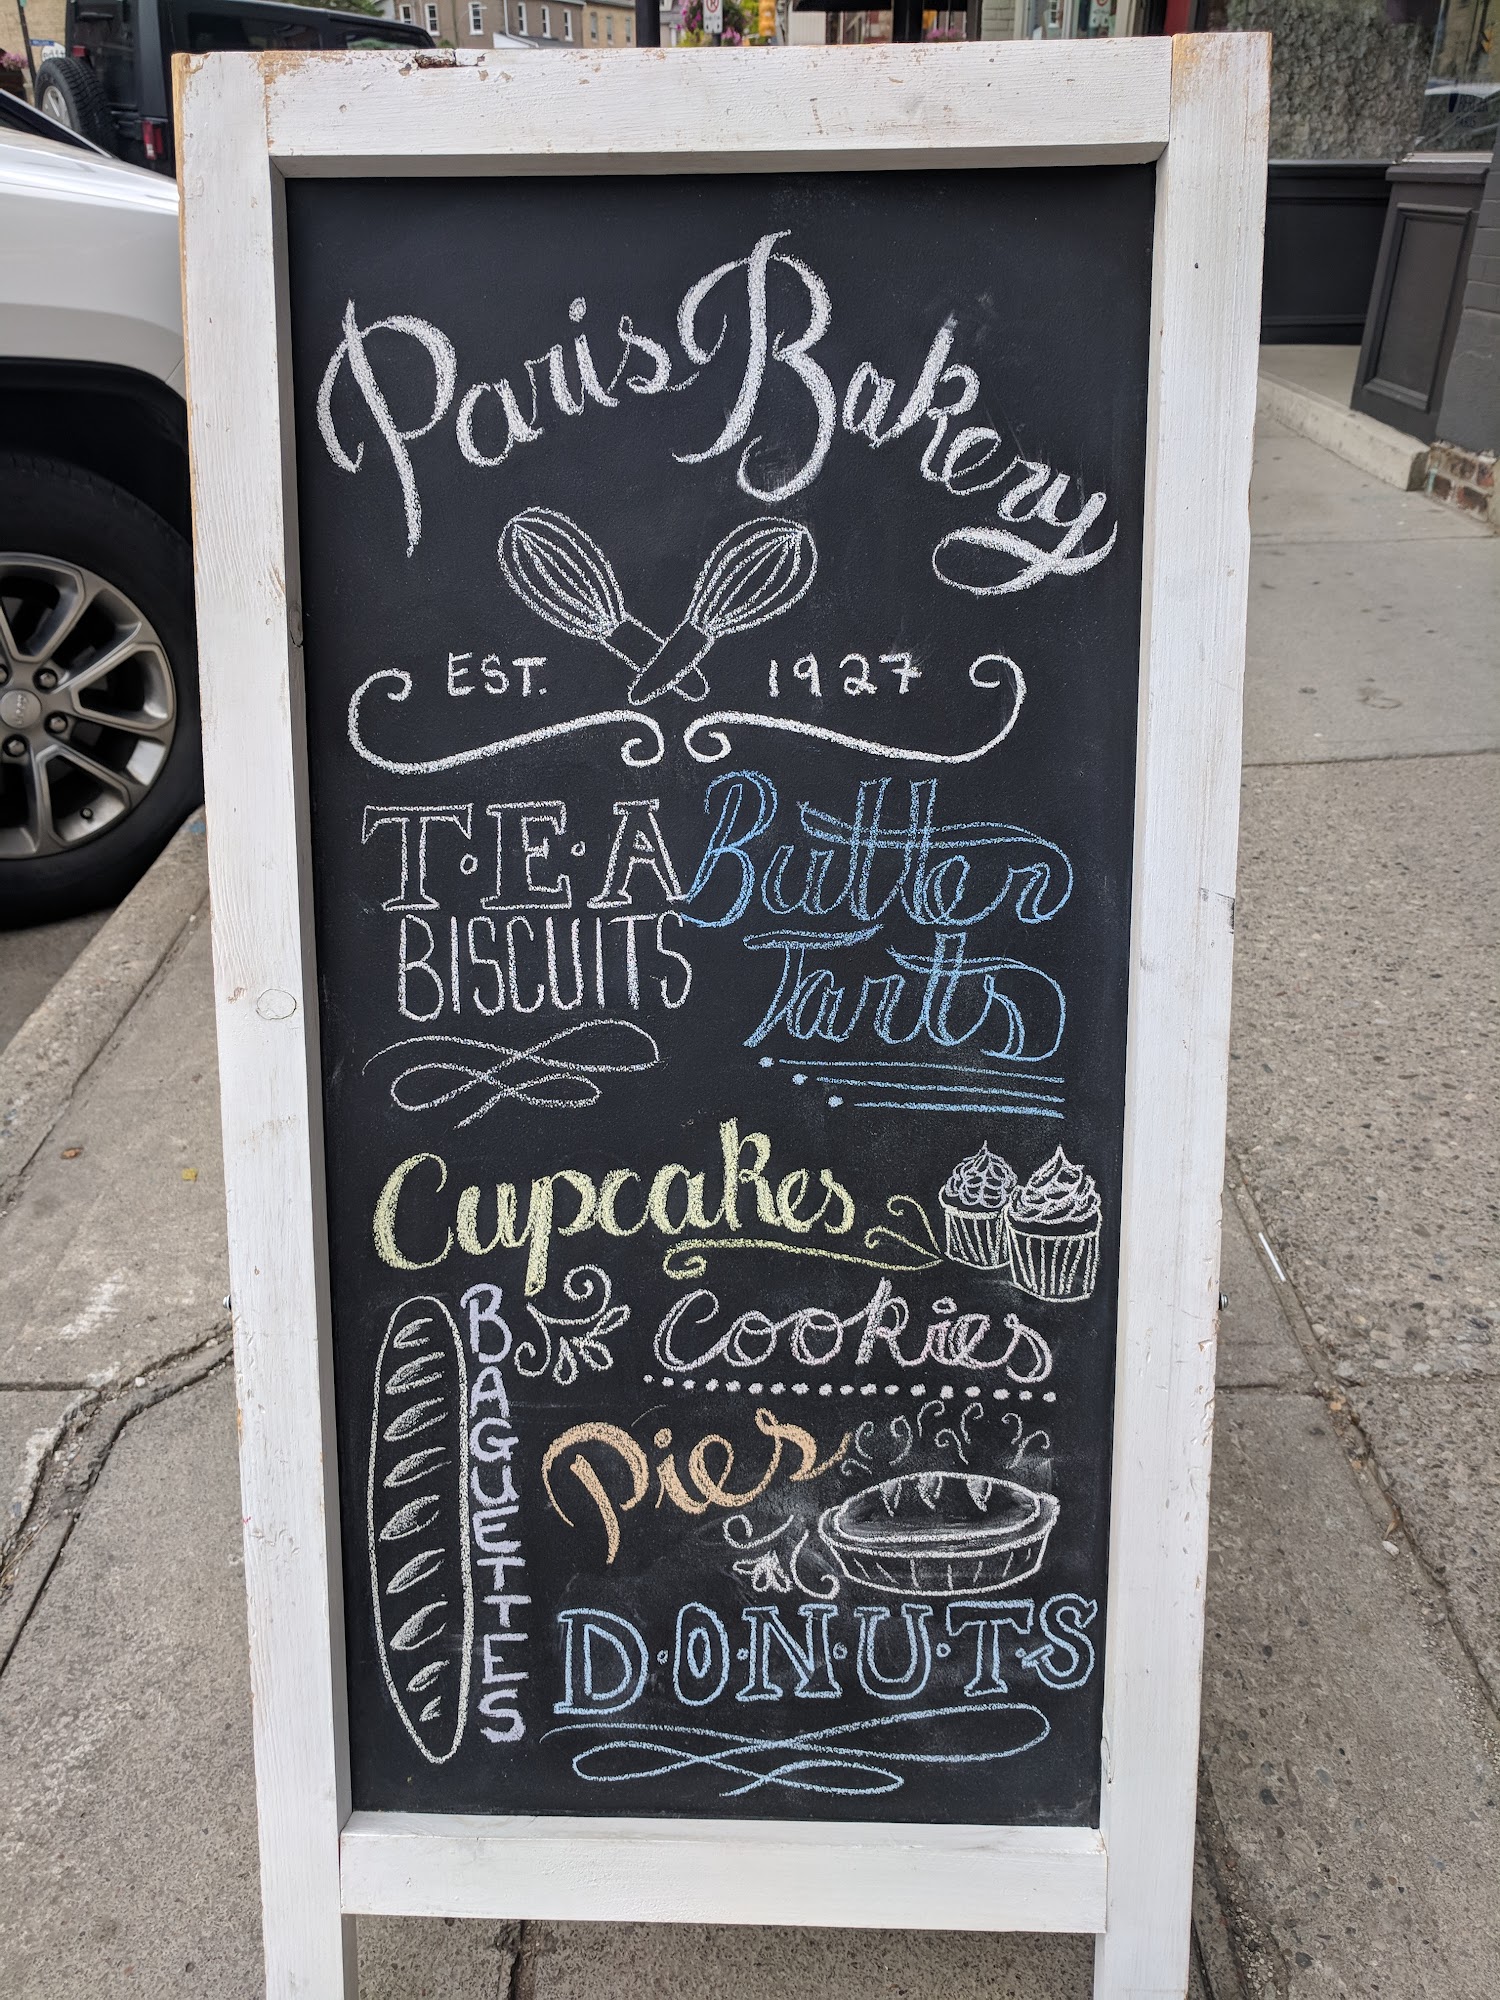 Paris Bakery
EST. 1927
T·E·A
BISCUITS
Butter
Tarts
Cupcakes
Cookies
BAGUETTES
Pies
D·O·N·U·T·S